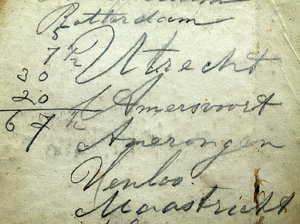 Rotterdam
5
7 h Utrecht
30
20 Amersvoort
67 h Amerongen
Venloo
Maastricht